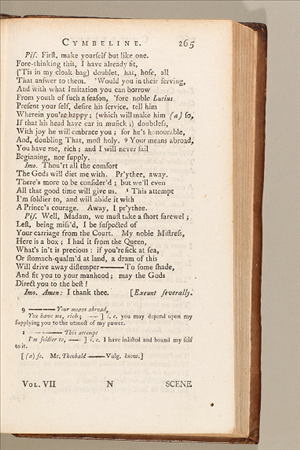 CYMBELINE. 265
Pis. First, make yourself but like one.
Fore-thinking this, I have already fit,
('Tis in my cloak bag) doublet, hat, hose, all
That answer to them. 'Would you in their serving,
And with what Imitation you can borrow
From youth of such a season, 'fore noble Lucius
Present your self, desire his service, tell him
Wherein you're happy; (which will make him (a) so,
If that his head have ear in musick;) doubtless,
With joy he will embrace you; for he's honourable,
And, doubling That, most holy. 9 Your means abroad,
You have me, rich; and I will never fail
Beginning, nor supply.
Imo. Thou'rt all the comfort
The Gods will diet me with. Pr'ythee, away.
There's more to be consider'd; but we'll even
All that good time will give us. 1 This attempt
I'm soldier to, and will abide it with
A Prince's courage. Away, I pr'ythee.
Pis. Well, Madam, we must take a short farewel;
Lest, being miss'd, I be suspected of
Your carriage from the Court. My noble Mistress,
Here is a box; I had it from the Queen,
What's in't is precious: if you're sick at sea,
Or stomach-qualm'd at land, a dram of this
Will drive away distemper—To some shade,
And fit you to your manhood; may the Gods
Direct you to the best!
Imo. Amen: I thank thee. [Exeunt severally.
9 —— Your means abroad,
You have me, rich; ——] i. e. you may depend upon my
supplying you to the utmost of my power.
1 —— This attempt
I'm soldier to, ——] i. e. I have inlisted and bound my self
to it.
[(a) so. Mr. Theobald —— Vulg. know.]
VOL. VII N SCENE